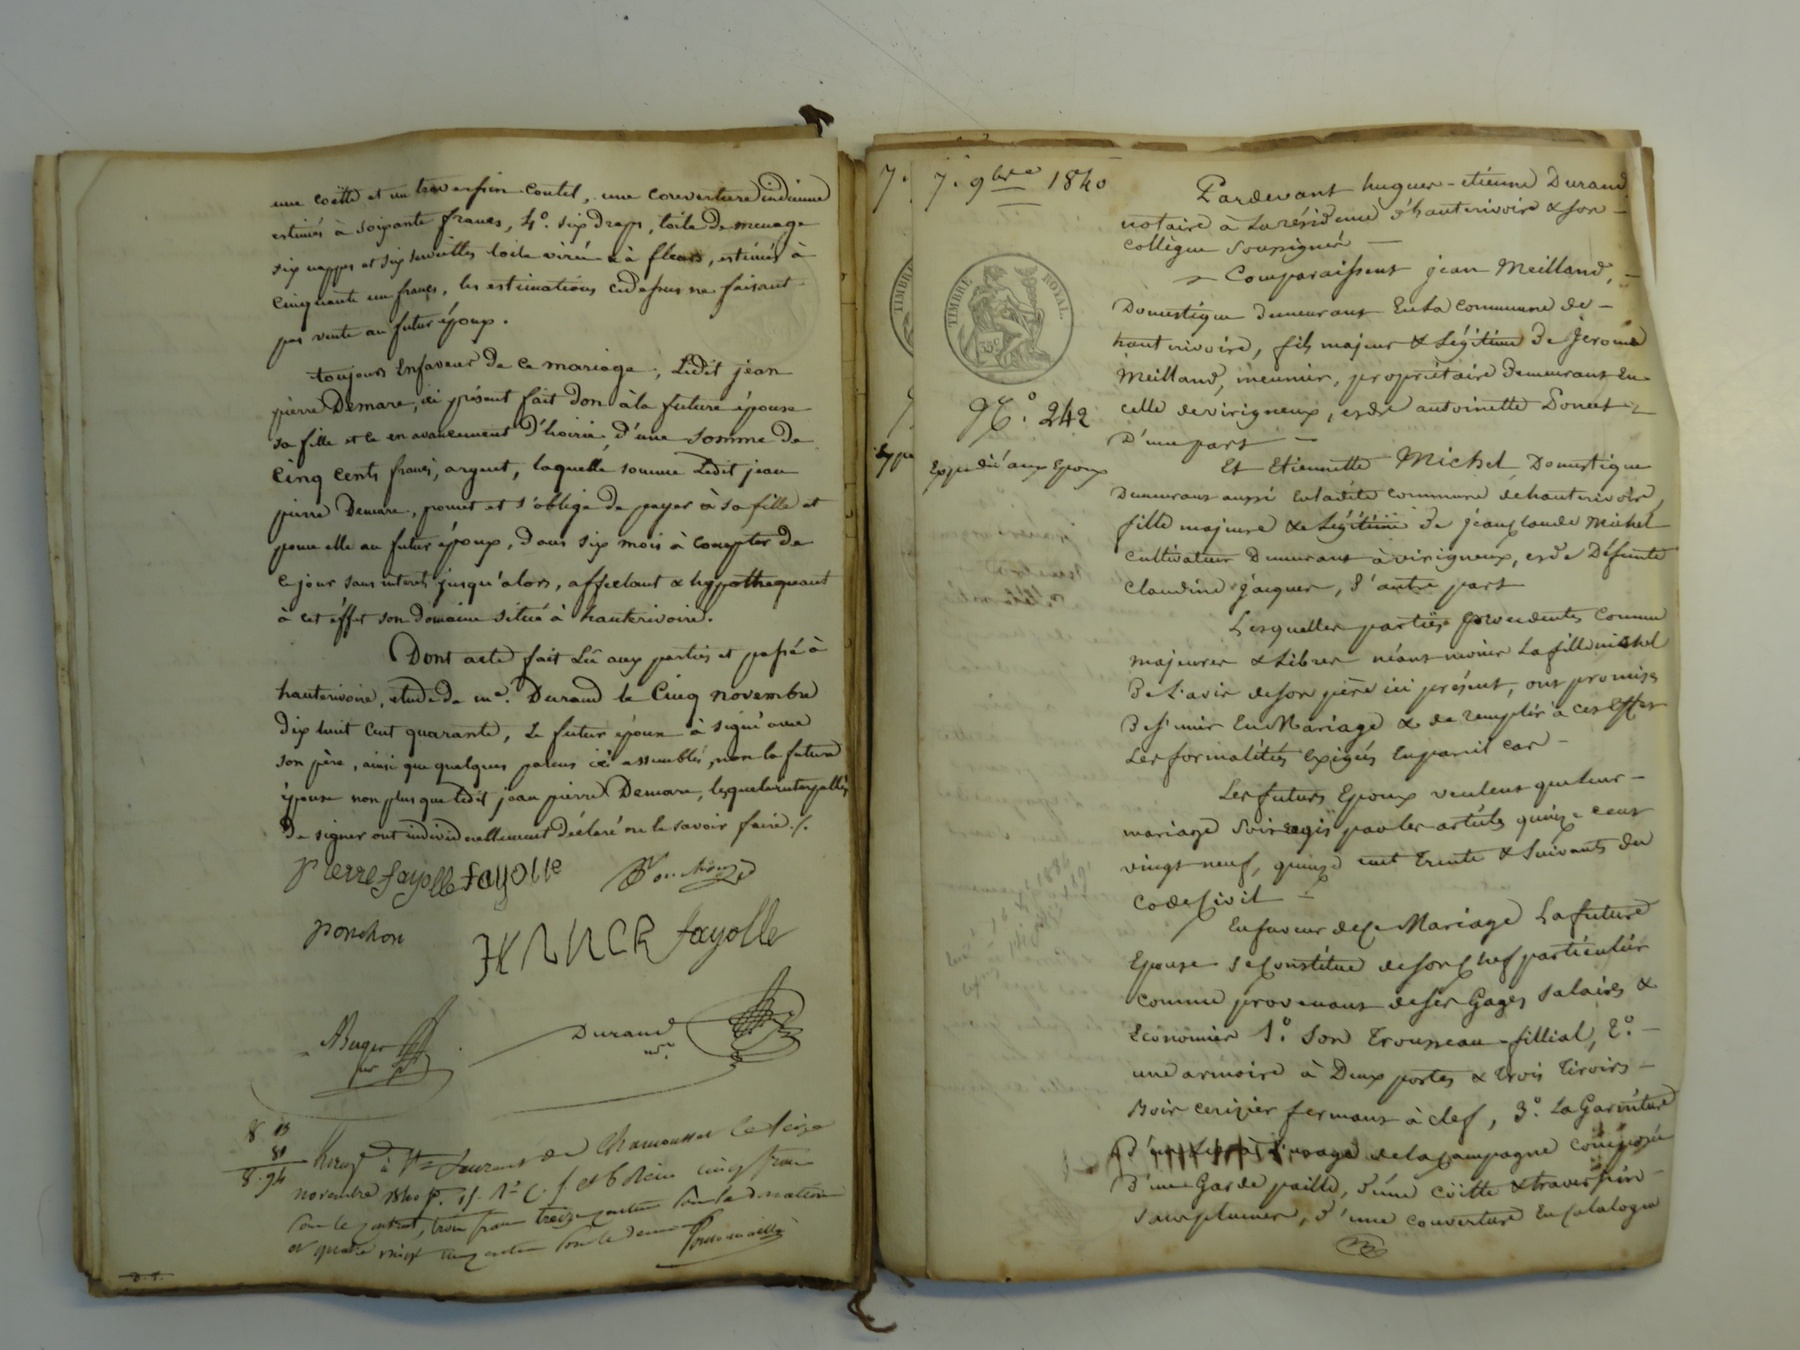 une coëtte et un traversin coutel, une couverture indienne
estimés à soixante francs, 4°. six draps, toile de menage
six nappes et six serviettes toile virée & à fleurs, estimés à
cinquante un francs, les estimations cidessus ne faisant
pas vente au futur époux.
toujours Enfaveur de ce mariage, Ledit jean
pierre Demare, ici présent fait don à la future épouse
sa fille et ce en avancement d'hoirie, d'une somme de
cinq cents francs, argent, laquelle somme Ledit jean
pierre Demare, promet et s'oblige de payer à sa fille et
pour elle au futur époux, dans six mois à compter de
ce jour sans interêt jusqu'alors, affectant & hypothequant
à cet effet son domaine situé à hauterivoire.
Dont acte fait Lû aux parties et passé à
hauterivoire, etude de me. Durand le Cinq novembre
dix huit cent quarante, Le futur époux à signé avec
son père, ainsi que quelques parens ici assemblés, non la future
épouse non plus que ledit jean pierre Demare, lesquels interpellés
de signer ont individuellement déclaré ne le savoir faire./.
pierre fayolle fayolle Ponchon
ponchon fayolle
Durand
nre
8 13
81
8.94
St Laurent de Chamousset le seize
novembre 1840 cinq francs
pour le contrat, trois francs treize centimes pour la donation
et quatre vingt un centimes pour le decime
7. 9bre 1840
TIMBRE ROYAL.
35c
N°. 242
Expedié aux Epoux
Pardevant hugues-etienne Durand
notaire à La résidence d'hauterivoire & son -
collègue Soussignés -
Comparaissent jean Meilland, -
Domestique demeurant En la commune de -
hauterivoire, fils majeur & Légitime de Jerome
Meilland, meunier, propriétaire demeurant En
celle de virigneux, et de antoinette Poncet
D'une part -
Et Etiennette Michel Domestique
Demeurant aussi En ladite commune de hauterivoire,
fille majeure & Légitime de jean claude Michel
cultivateur Demeurant à virigneux, et de Défunte
Claudine jacquer, d'autre part
Lesquelles parties procedentes comme
majeures & Libres néanmoins La fille michel
De L'avis de son père ici présent, ont promis
De s'unir En Mariage & de remplir à ces Effets
Les formalités Exigés En pareil cas -
Les futurs Epoux veulent que leur -
mariage soit régis par les articles quinze cent
vingt neuf, quinze cent trente & suivants du
code civil -
En faveur de ce Mariage La future
Epouse se constitue de son chef particulier
comme provenant de ses Gages salaires &
Economies 1°. son trousseau-fillial, 2°. -
une armoire à Deux portes & trois tiroirs -
Bois cerisier fermant à clef, 3°. La Garniture
D'un Lit à l'usage de la campagne composée
D'une Garde paille, d'une coitte & traversin -
sans plumes, d'une couverture En Catalogne